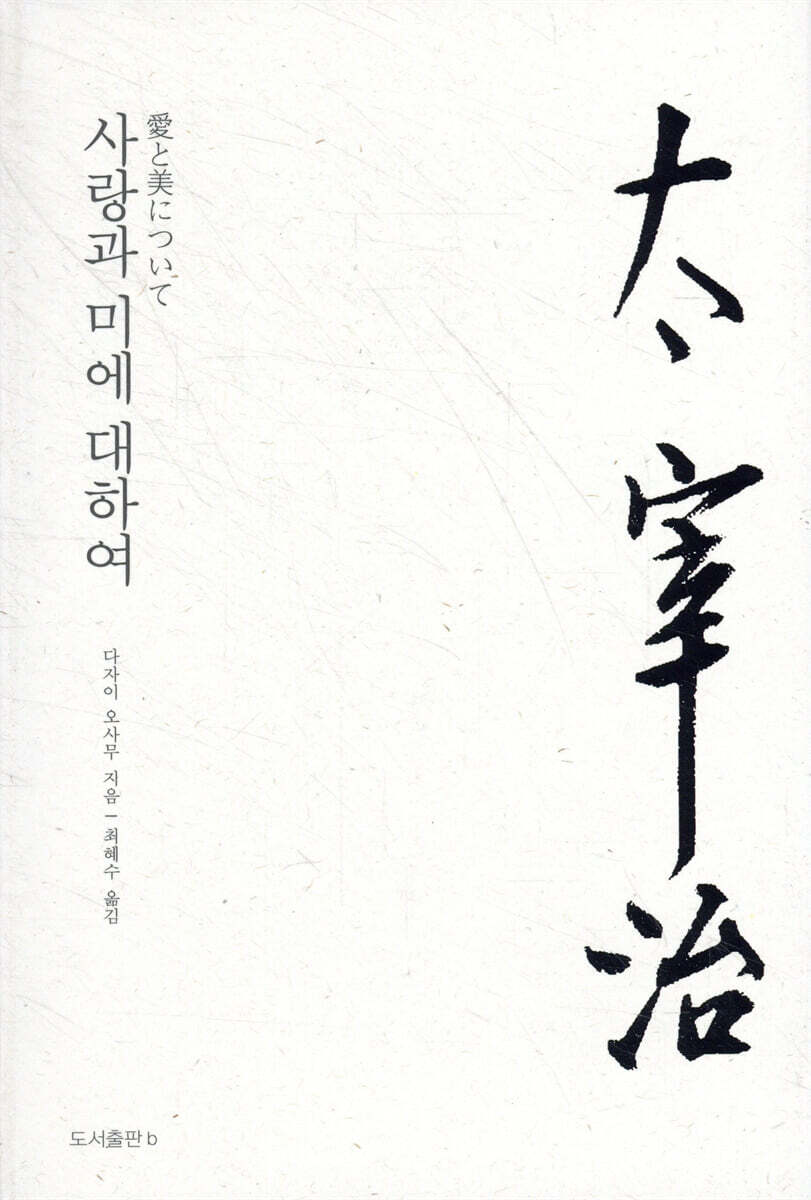 太宰治
愛と美について
사랑과 미에 대하여
다자이 오사무 지음 – 최혜수 옮김
도서출판 b